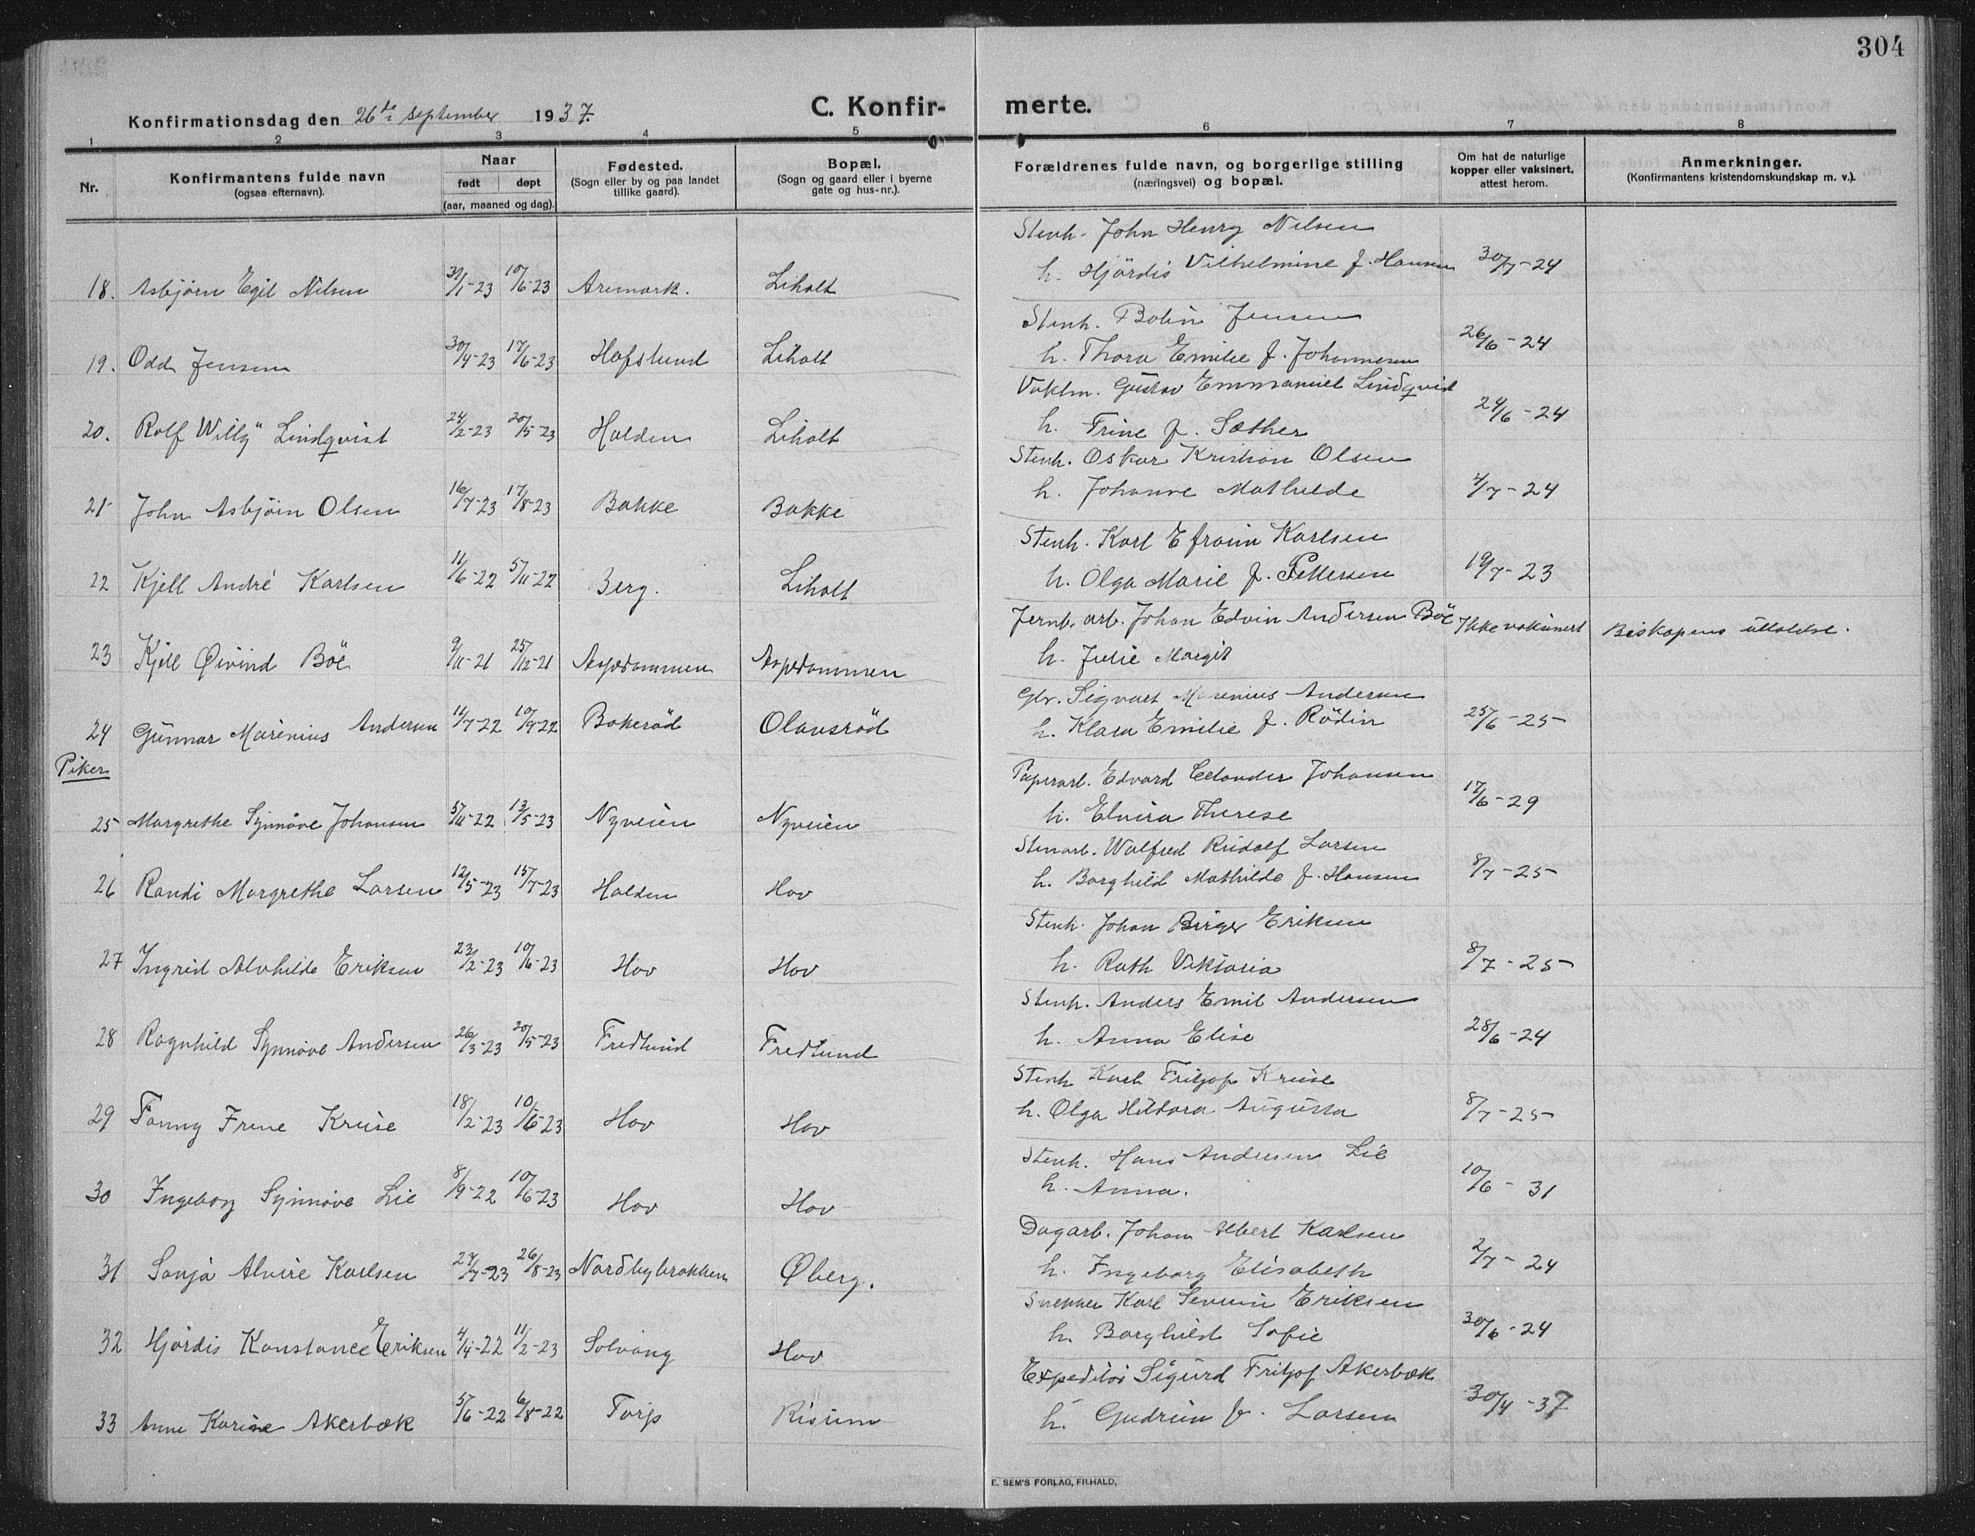 304
Konfirmationsdag den 26de september 1937.
C. Konfir- merte.
1 2 3 4 5 6 7 8
Nr.
Konfirmantens fulde navn
(ogsaa efternavn).
Naar
født døpt
(aar, maaned og dag).
Fødested.
(Sogn eller by og paa landet
tillike gaard).
Bopæl.
(Sogn og gaard eller i byerne
gate og hus-nr.).
Forældrenes fulde navn, og borgerlige stilling
(næringsvei) og bopæl.
Om hat de naturlige
kopper eller vaksinert,
attest herom.
Anmerkninger.
(Konfirmantens kristendomskundskap m. v.).
Stenh. John Henry Nilsen
18. Asbjørn Egil Nilsen 31/1-23 10/6-23 Aremark. Liholt h. Hjördis Vilhelmine f. Hansen 30/7-24
Stenh. Botin Jensen
19. Odd Jensen 30/4-23 17/6-23 Hafslund Liholt h. Thora Emilie f. Johannesen 26/6-24
Vaktm. Gustav Emmanuel Lindqvid
20. Rolf Willy Lindqvist 24/2-23 20/5-23 Halden Liholt h. Trine f. Sæther 24/6-24
Stenh. Oskar Kristian Olsen
21 John Asbjørn Olsen 16/7-23 17/8-23 Bakke Bakke h. Johanne Mathilde 4/7-24
Stenh. Karl Efraim Karlsen
22 Kjell André Karlsen 11/6-22 5/11-22 Berg. Liholt h. Olga Marie f. Pettersen 19/7-23
Jernb. arb. Johan Edvin Andersen Böe
23 Kjell Øivind Böe 9/11-21 25/12-21 Aspedammen Aspedammen h. Julie Margit Ikke vaksinert Biskopens uttalelse.
Gbr. Sigvart Marenius Andersen
24 Gunnar Marenius Andersen 14/7-22 10/9-22 Bakeröd Olavsröd h. Klara Emilie f. Rödin 25/6-25
Piker
Papirarb. Edvard Celander Johansen
25 Margrethe Synnöve Johansen 5/11-22 13/5-23 Nyveien Nyveien h. Elvira Therese 17/6-29
Stenarb. Walfred Rudolf Larsen
26 Randi Margrethe Larsen 12/5-23 15/7-23 Halden Hov h. Borghild Mathilde f. Hansen 8/7-25
Stenh. Johan Birger Eriksen
27 Ingrid Alvhilde Eriksen 23/2-23 10/6-23 Hov Hov h. Ruth Viktoria 8/7-25
Stenh. Anders Emil Andersen
28 Ragnhild Synnöve Andersen 26/3-23 20/5-23 Fredlund Fredlund h. Anna Elise 28/6-24
Stenh Karl Fritjof Kruse
29 Fanny Irene Kruse 18/2-23 10/6-23 Hov Hov h. Olga Hildora Augusta 8/7-25
Stenh. Hans Andersen Lie
30 Ingeborg Synnöve Lie 8/9-22 10/6-23 Hov Hov h. Anna. 10/6-31
Dagarb. Johan Albert Karlsen
31 Sonja Alvire Karlsen 27/7-23 26/8-23 Nordbybrakken Øberg. h. Ingeborg Elisabeth 2/7-24
Snekker Karl Severin Eriksen
32 Hjördis Konstance Eriksen 4/4-22 11/2-23 Solvang Hov h. Borghild Sofie 30/6-24
Expeditör Sigurd Fritjof Akerbæk
33 Anne Karine Akerbæk 5/6-22 6/8-22 Torp Risum h. Gudrun f. Larsen 30/4-37
E. SEM'S FORLAG, FR.HALD.